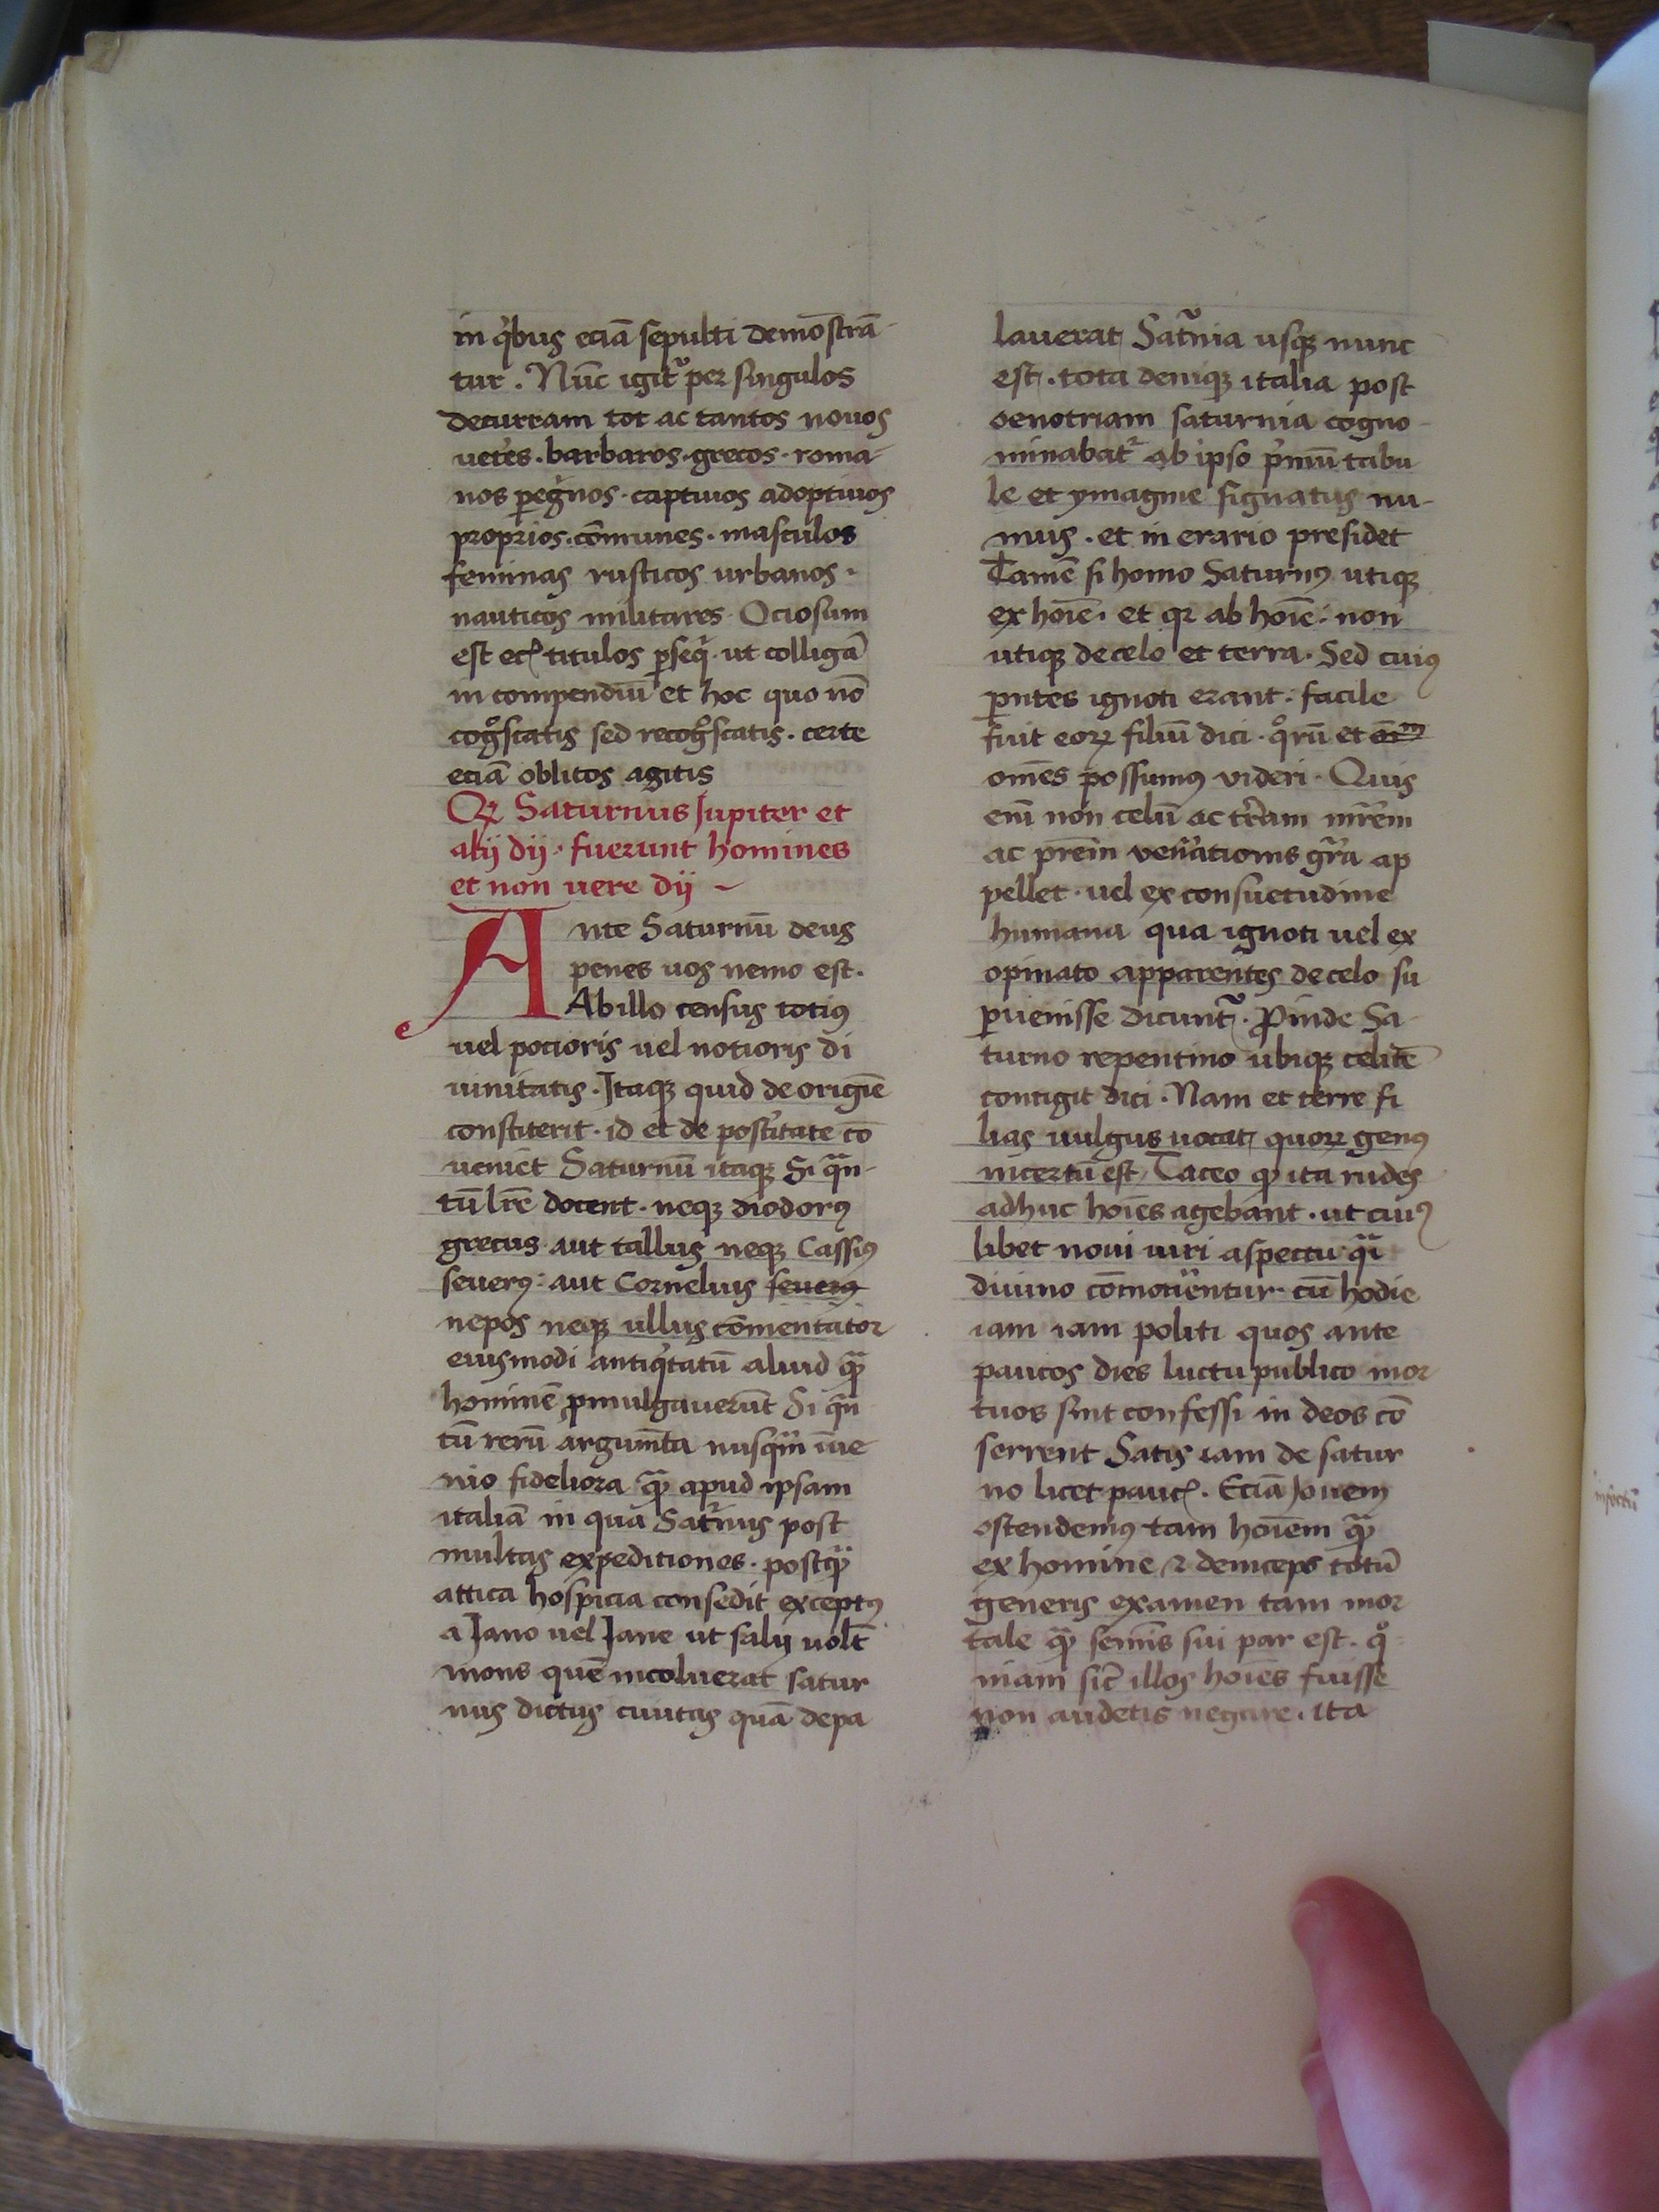 in q̇bus eciā sepulti demōstrā-
tur . Nūc igit᷑ per singulos
decurram tot ac tantos novos
veteŕs . barbaros . grecos . roma-
nos peg̓nos . captivos adoptivos
proprios . cōmunes . masculos
feminas rusticos urbanos .
nauticos militares Ociosum
est ecꝭ titulos ꝑseq̇ . ut colligā
in compendiū et hoc quo nō
cog̊scatis sed recog̊scatis . certe
eciā oblitos agitis
Qꝫ Saturnus Jupiter et
alij dij . fuerunt homines
et non vere dij ~
Ante Saturnū deus
penes vos nemo est .
Ab illo census totiꝰ
vel pocioris vel notioris di
vinitatis . Itaqꝫ quid de origīe
constiterit . id et de post̓itate cō
veniet Saturnū itaqꝫ Si qᷓn-
tū lr̄e docent . neqꝫ diodorꝰ
grecus aut tallus neqꝫ Cassiꝰ
severꝰ . aut Cornelius severꝰ
nepos neqꝫ ullus cōmentator
eiusmodi antiq̇tatū aliud qᷓꝫ
hominē ꝓmulgaverūt Si qᷓn
tū rerū argumn̄ta nusqᷓm īve
nio fideliora qᷓꝫ apud ipsam
italiā in qua Sat᷑nus post
multas expeditiones . postqᷓꝫ
attica hospicia consedit exceptꝰ
a Jano vel Jane ut salij volt̄
mons quē incoluerat satur
nus dictus civitas quā depa
laverat Sat᷑nia usqꝫ nunc
est . tota deniqꝫ italia post
oenotriam saturnia cogno-
minabat᷑ ab ipso p̓mū tabu
le et ymagine signatus nu-
mus . et in erario presidet
Tamē si homo Saturnꝰ utiqꝫ
ex hoīe . et qꝛ ab hoīe : non
utiqꝫ de celo et terra . Sed cuiꝰ
ꝑntes ignoti erant . facile
fuit eoꝝ filiū dici . q̊rū et
om̄es possumꝰ videri . Quis
enī non celū ac tr̄am mr̄em
ac pr̄em ven̓ationis gr̄a ap
pellet . vel ex consuetudine
humana qua ignoti vel ex
opinato apparentes de celo su
ꝑvenisse dicunt᷑ . Ꝓinde Sa
turno repentino ubiqꝫ celitē
contigit dici . Nam et terre fi
lias vulgus vocat quoꝝ genꝰ
incertū est Taceo ꝙ ita rudes
adhuc hoīes agebant . ut cuiꝰ
libet novi viri aspectu qᷓi
divino cōmov̓entur . cū hodie
iam iam politi quos ante
paucos dies luctu publico mor
tuos sint confessi in deos cō
serrent Satis iam de satur
no licet paucꝭ . Eciā Jovem
ostendemꝰ tam hoīem qᷓꝫ
ex homine ⁊ deinceps totū
generis examen tam mor
tale qᷓꝫ semīs sui par est . q̊-
niam sic̄ illos hoīes fuisse
non audetis negare . ita